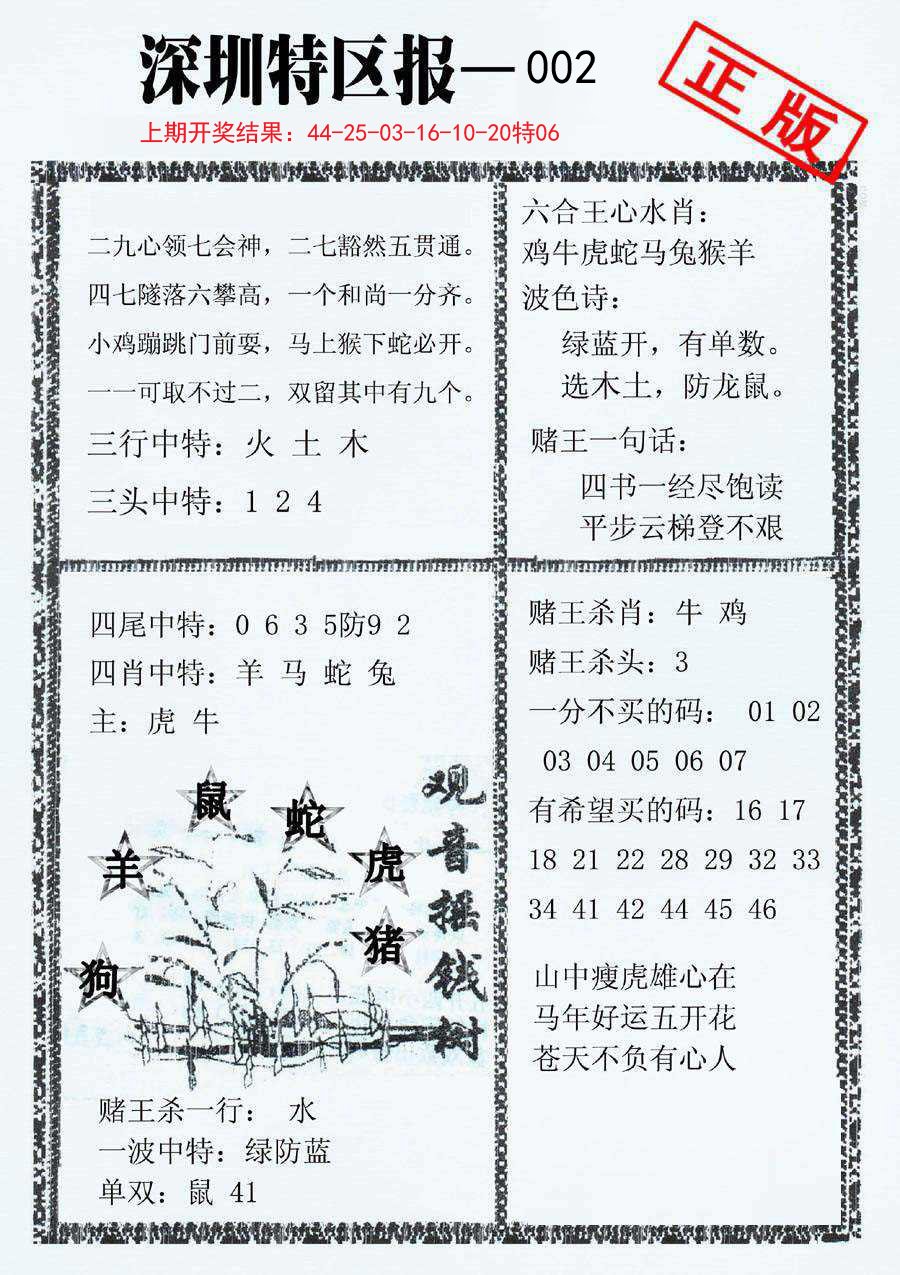 深圳特区报—002
正版
上期开奖结果：44-25-03-16-10-20特06
二九心领七会神，二七豁然五贯通。
四七隧落六攀高，一个和尚一分齐。
小鸡蹦跳门前耍，马上猴下蛇必开。
一一可取不过二，双留其中有九个。
三行中特：火 土 木
三头中特：1 2 4
六合王心水肖：
鸡牛虎蛇马兔猴羊
波色诗：
绿蓝开，有单数。
选木土，防龙鼠。
赌王一句话：
四书一经尽饱读
平步云梯登不艰
四尾中特：0 6 3 5防9 2
四肖中特：羊 马 蛇 兔
主：虎 牛
鼠
蛇
羊
虎
猪
狗
观音摇钱树
赌王杀一行： 水
一波中特：绿防蓝
单双：鼠 41
赌王杀肖：牛 鸡
赌王杀头：3
一分不买的码： 01 02
03 04 05 06 07
有希望买的码：16 17
18 21 22 28 29 32 33
34 41 42 44 45 46
山中瘦虎雄心在
马年好运五开花
苍天不负有心人